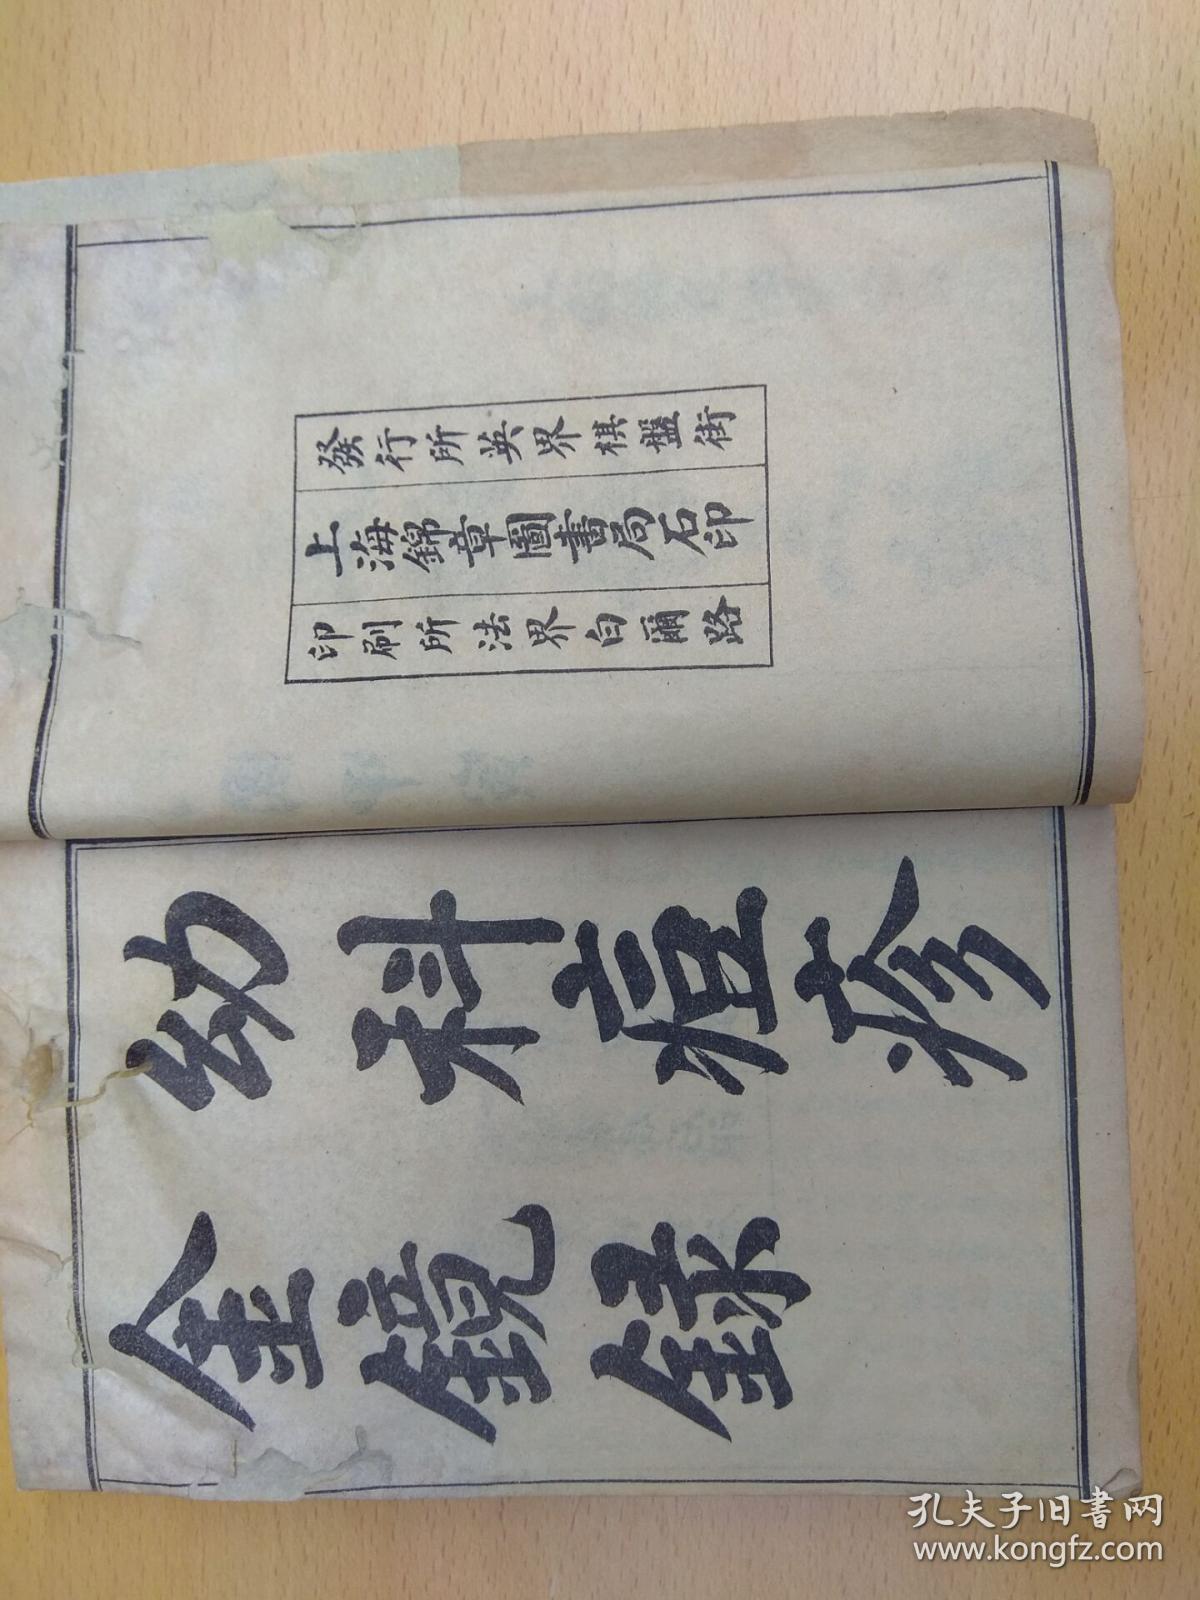 發行所英界棋盤街
上海錦章圖書局石印
印刷所法界白爾路
幼科痘疹
金鏡錄
孔夫子旧书网
www.kongfz.com